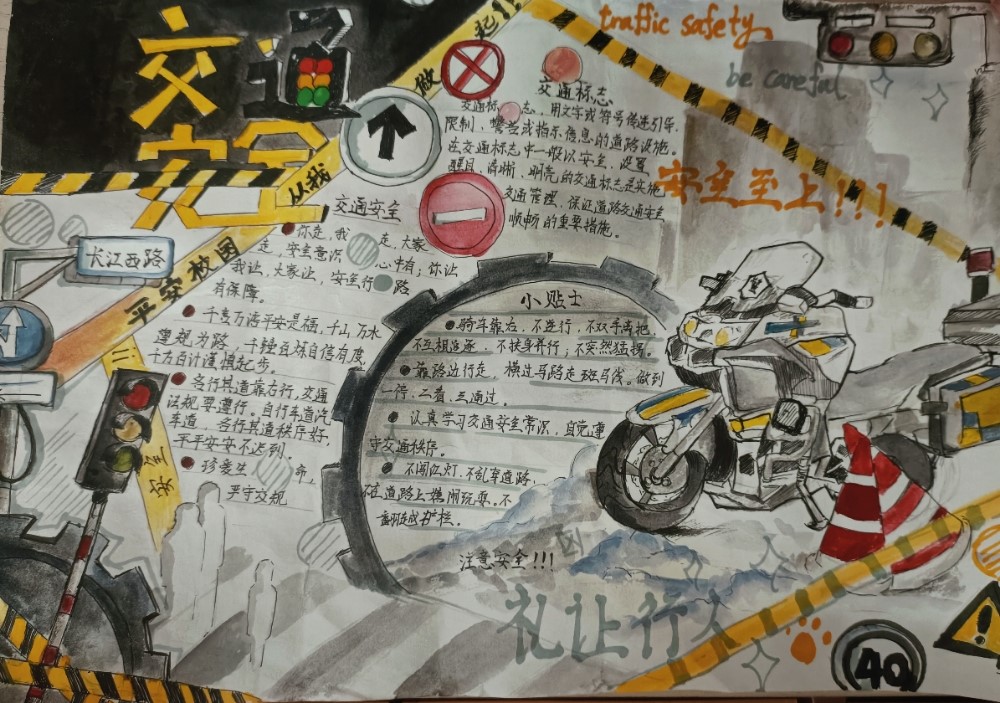 交通
安全
从我做起!!
平安校园
长江西路
安全
traffic safety
be careful
安全至上!!!
交通标志
交通标志，用文字或符号传递引导、
限制、警告或指示信息的道路设施。
在交通标志中一般以安全、设置
醒目、清晰、明亮的交通标志是实施
交通管理，保证道路交通安全
顺畅的重要措施。
交通安全
你走，我走，大家
走，安全意识心中有；你让
我让，大家让，安全行路
有保障。
千变万海平安是福，千山万水
千方百计谨慎起步。
各行其道靠右行，交通
法规要遵行。自行车道汽
车道，各行其道秩序好，
平平安安不迟到。
珍爱生命，
严守交规
小贴士
骑车靠右，不逆行，不双手离把，
不互相追逐，不扶身并行；不突然猛拐。
靠路边行走，横过马路走斑马线。做到
一停，二看，三通过。
认真学习交通安全常识，自觉遵
守交通秩序。
不闯红灯，不乱穿道路，
不在道路上嬉闹玩耍。不
翻越护栏。
注意安全!!!
礼让行人
40